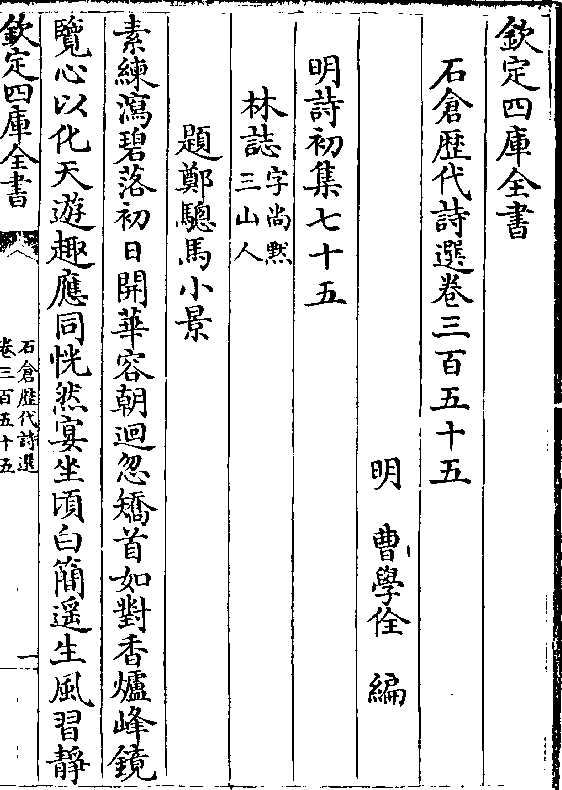 欽定四庫全書
石倉歴代詩選卷三百五十五
明　曹學佺　編
明詩初集七十五
林誌字尚黙三山人
題鄭驄馬小景
素練瀉碧落初日開華容朝迴忽矯首如對香爐峰鏡
覽心以化天遊趣應同恍然宴坐頃白簡遥生風習靜
欽定四庫全書
石倉歴代詩選
卷三百五十五
一